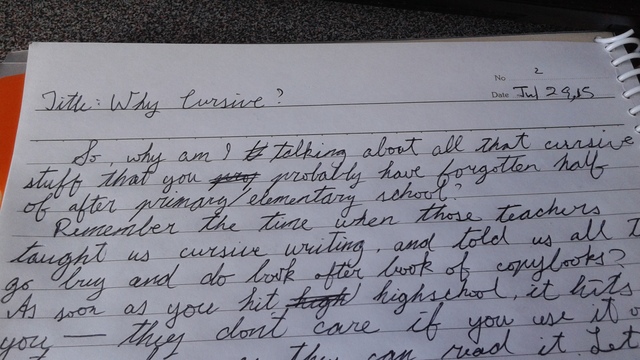 No 2
Date Jul 29,15
Title: Why Cursive?
So, why am I talking about all that cursive
stuff that you probably have forgotten half
of after primary/elementary school?
Remember the time when those teachers
taught us cursive writing, and told us all t
go buy and do book after book of copybooks?
As soon as you hit high highschool, it hits
you — they don't care if you use it o
they can read it. Let